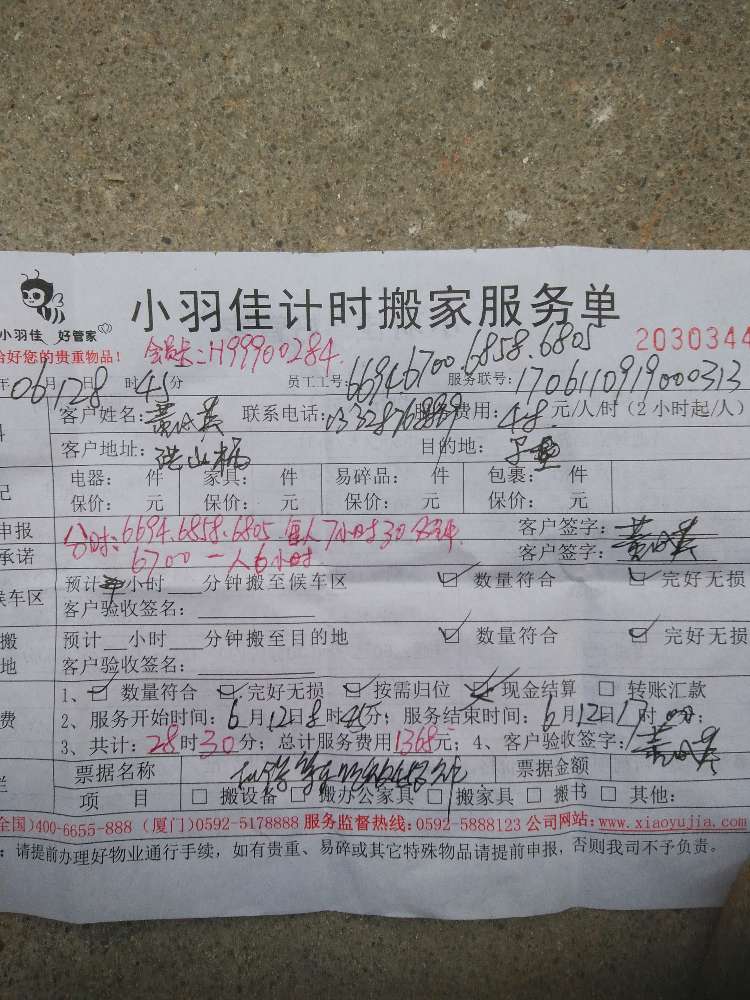 小羽佳计时搬家服务单
小羽佳 好管家
好您的贵重物品！ 会员卡:H99900284. 2030344
年06月12日8时45分 员工工号:6694 6700.6858.6805 服务联号:1706110919000313
客户姓名: 联系电话: 服务费用: 48 元/人/时（2小时起/人）
客户地址: 洪山柄 目的地:
电器: 件 家具: 件 易碎品: 件 包裹: 件
保价: 元 保价: 元 保价: 元 保价: 元
申报 分时:6694.6858.6805 每人7小时30分钟. 客户签字:
承诺 6700一人6小时. 客户签字:
候车区 预计 小时___分钟搬至候车区 ☑ 数量符合 ☑ 完好无损
客户验收签名:
搬 预计__小时___分钟搬至目的地 ☑ 数量符合 ☑ 完好无损
地 客户验收签名:
1、☑ 数量符合 ☑ 完好无损 ☑ 按需归位 ☑ 现金结算 □ 转账汇款
费 2、服务开始时间: 6月12日8时45分; 服务结束时间: 6月12日17时 分;
3、共计: 28时30分; 总计服务费用1368元; 4、客户验收签字:
票据名称 票据金额
项 目 □ 搬设备 □ 搬办公家具 □ 搬家具 □ 搬书 □ 其他:
全国)400-6655-888 (厦门)0592-5178888 服务监督热线:0592-5888123 公司网站:www.xiaoyujia.com
: 请提前办理好物业通行手续，如有贵重、易碎或其它特殊物品请提前申报，否则我司不予负责。